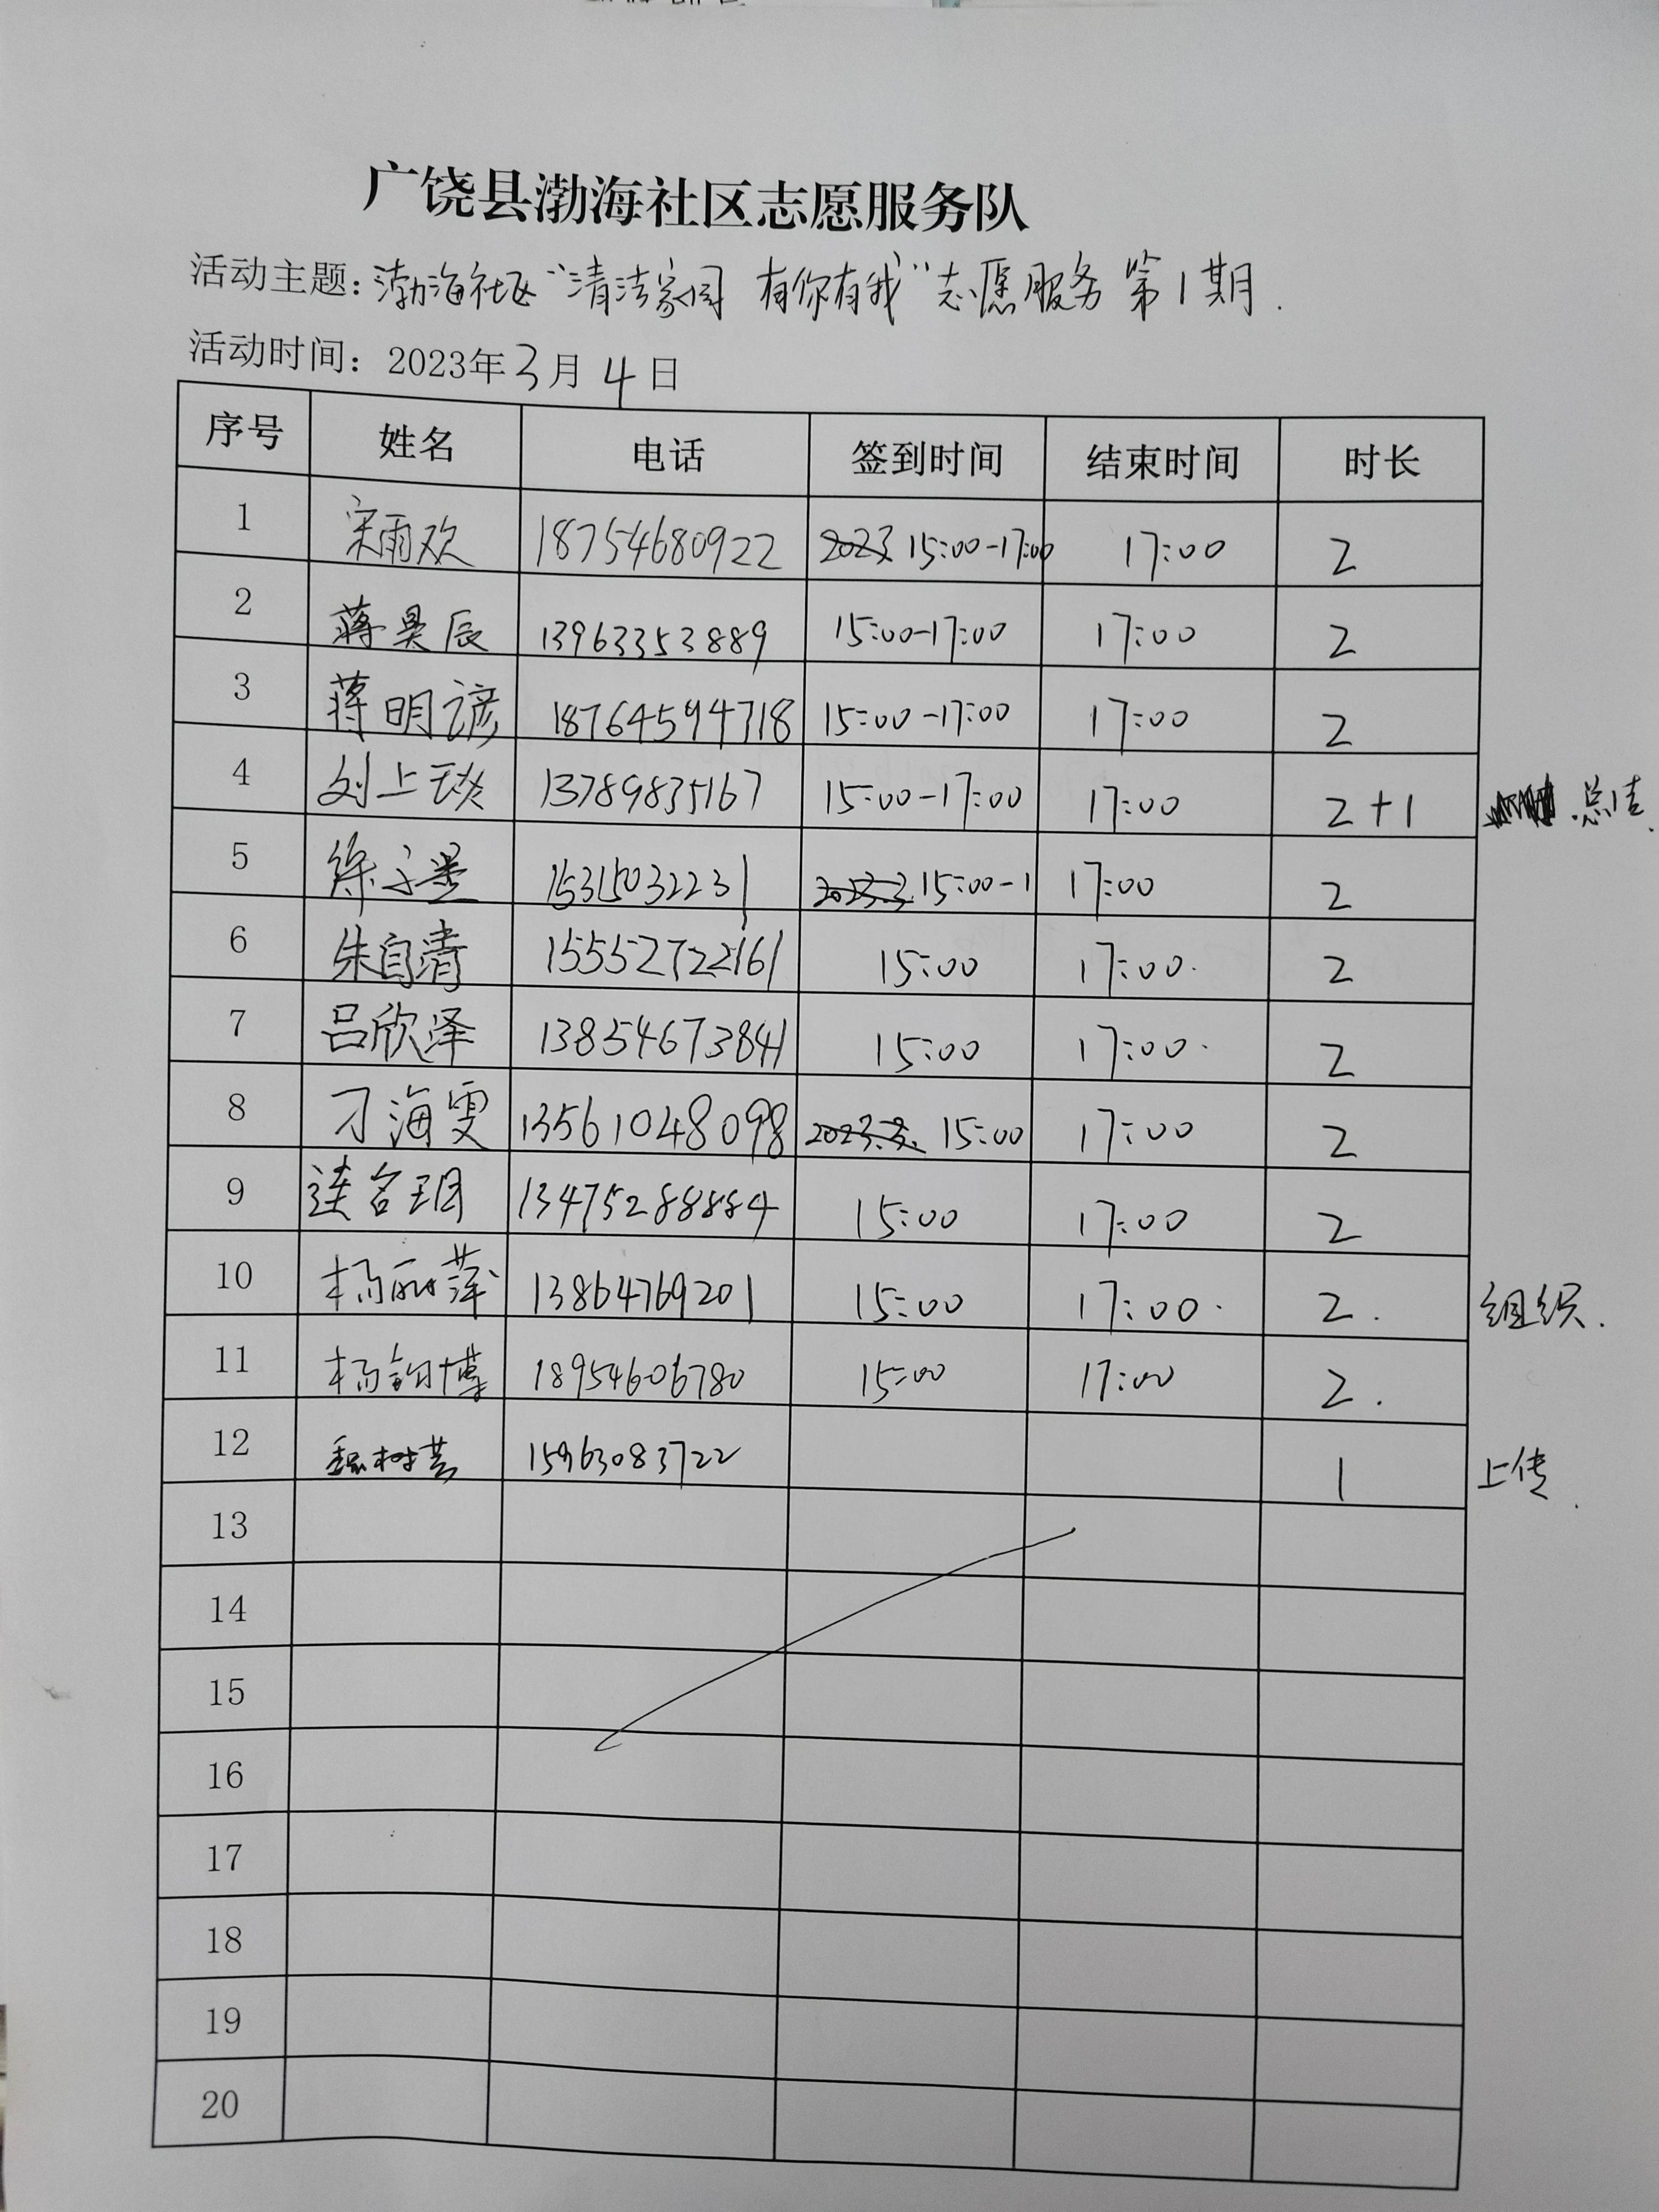 广饶县渤海社区志愿服务队
活动主题：渤海社区“清洁家园 有你有我”志愿服务 第1期.
活动时间：2023年3月4日
序号 姓名 电话 签到时间 结束时间 时长
1 宋雨欢 18754680922 2023 15:00-17:00 17:00 2
2 蒋昊辰 13963353889 15:00-17:00 17:00 2
3 蒋明谚 18764594718 15:00-17:00 17:00 2
4 刘上琰 13789835167 15:00-17:00 17:00 2+1 总结.
5 徐子墨 15315032231 2023.3 15:00-1 17:00 2
6 朱自清 15552722161 15:00 17:00. 2
7 吕欣泽 13854673841 15:00 17:00. 2
8 刁海雯 13561048098 2023.3. 15:00 17:00 2
9 13475288884 15:00 17:00 2
10 杨丽萍 13864769201 15:00 17:00. 2. 组织.
11 杨钧博 18954606780 15:00 17:00 2.
12 15963083722 1 上传.
13
14
15
16
17
18
19
20